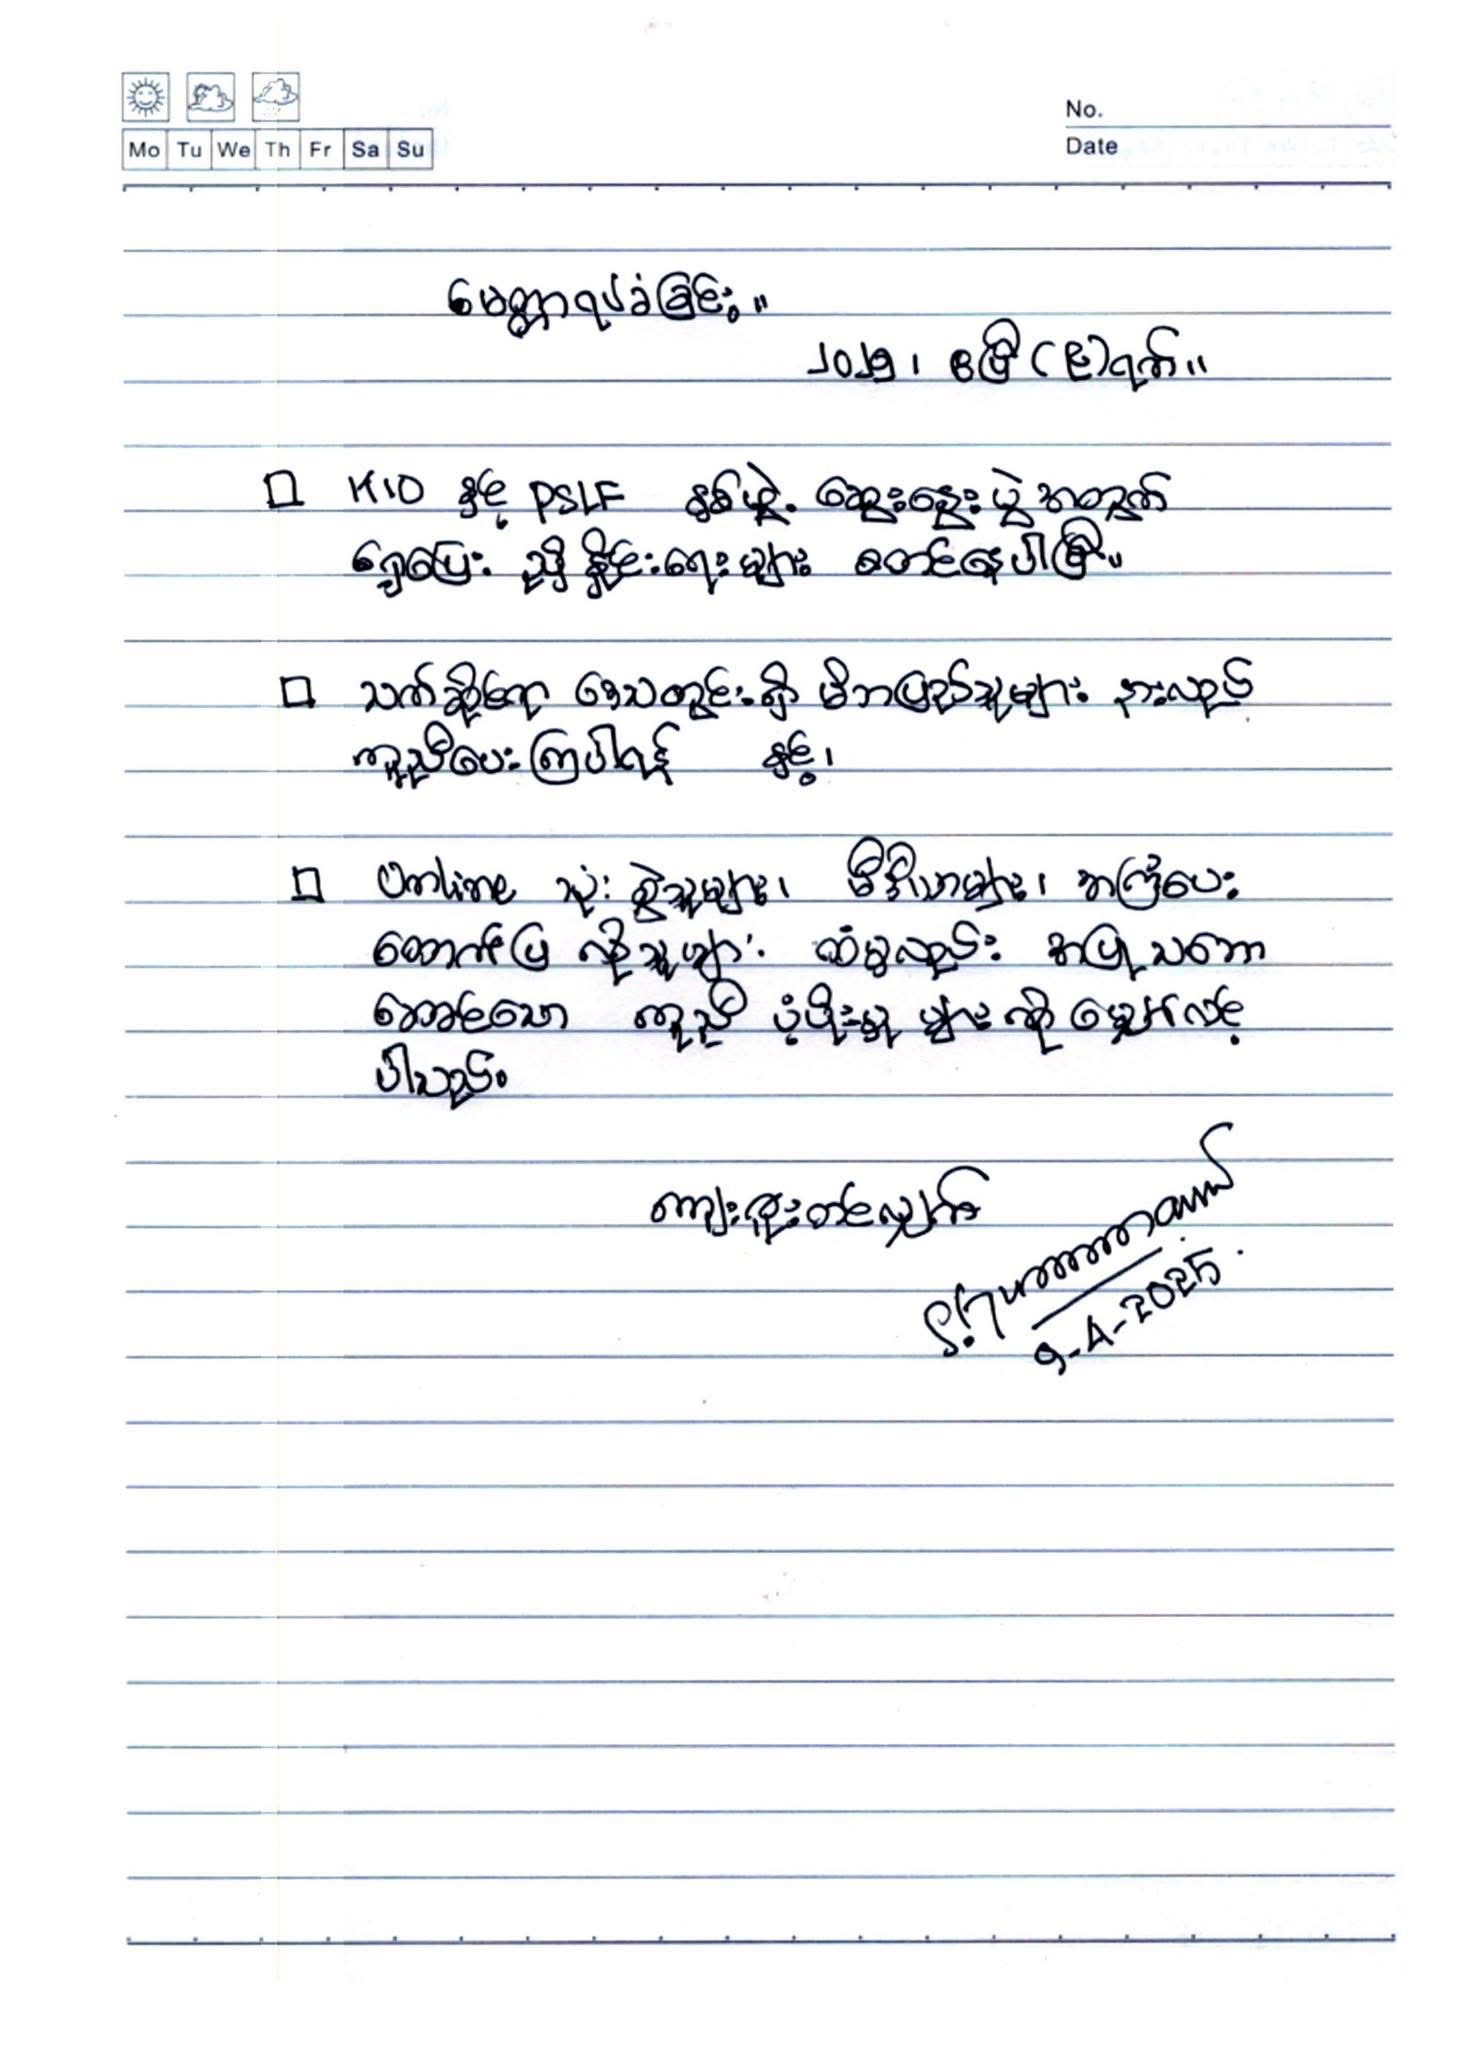 Mo Tu We Th Fr Sa Su
No.
Date
မေတ္တာရပ်ခံခြင်း။
၂၀၂၅၊ ဧပြီ (၉) ရက်။
□ KIO နှင့် PSLF နှစ်ဖွဲ့ ဆွေးနွေးပွဲအတွက်
ရှေ့ပြေး ညှိနှိုင်းရေးများ စတင်နေပါပြီ။
□ သက်ဆိုင်ရာ ဒေသတွင်းရှိ မိဘပြည်သူများ နားလည်
ကူညီပေးကြပါရန် နှင့်၊
□ Online သုံးစွဲသူများ၊ မီဒီယာများ၊ အကြံပေး
ထောက်ပြ လိုသူများ ထံမှလည်း အပြုသဘော
ဆောင်သော ကူညီ ပံ့ပိုးမှု များ ကို မျှော်လင့်
ပါသည်။
ကျေးဇူးတင်လျှက်
9-4-2025